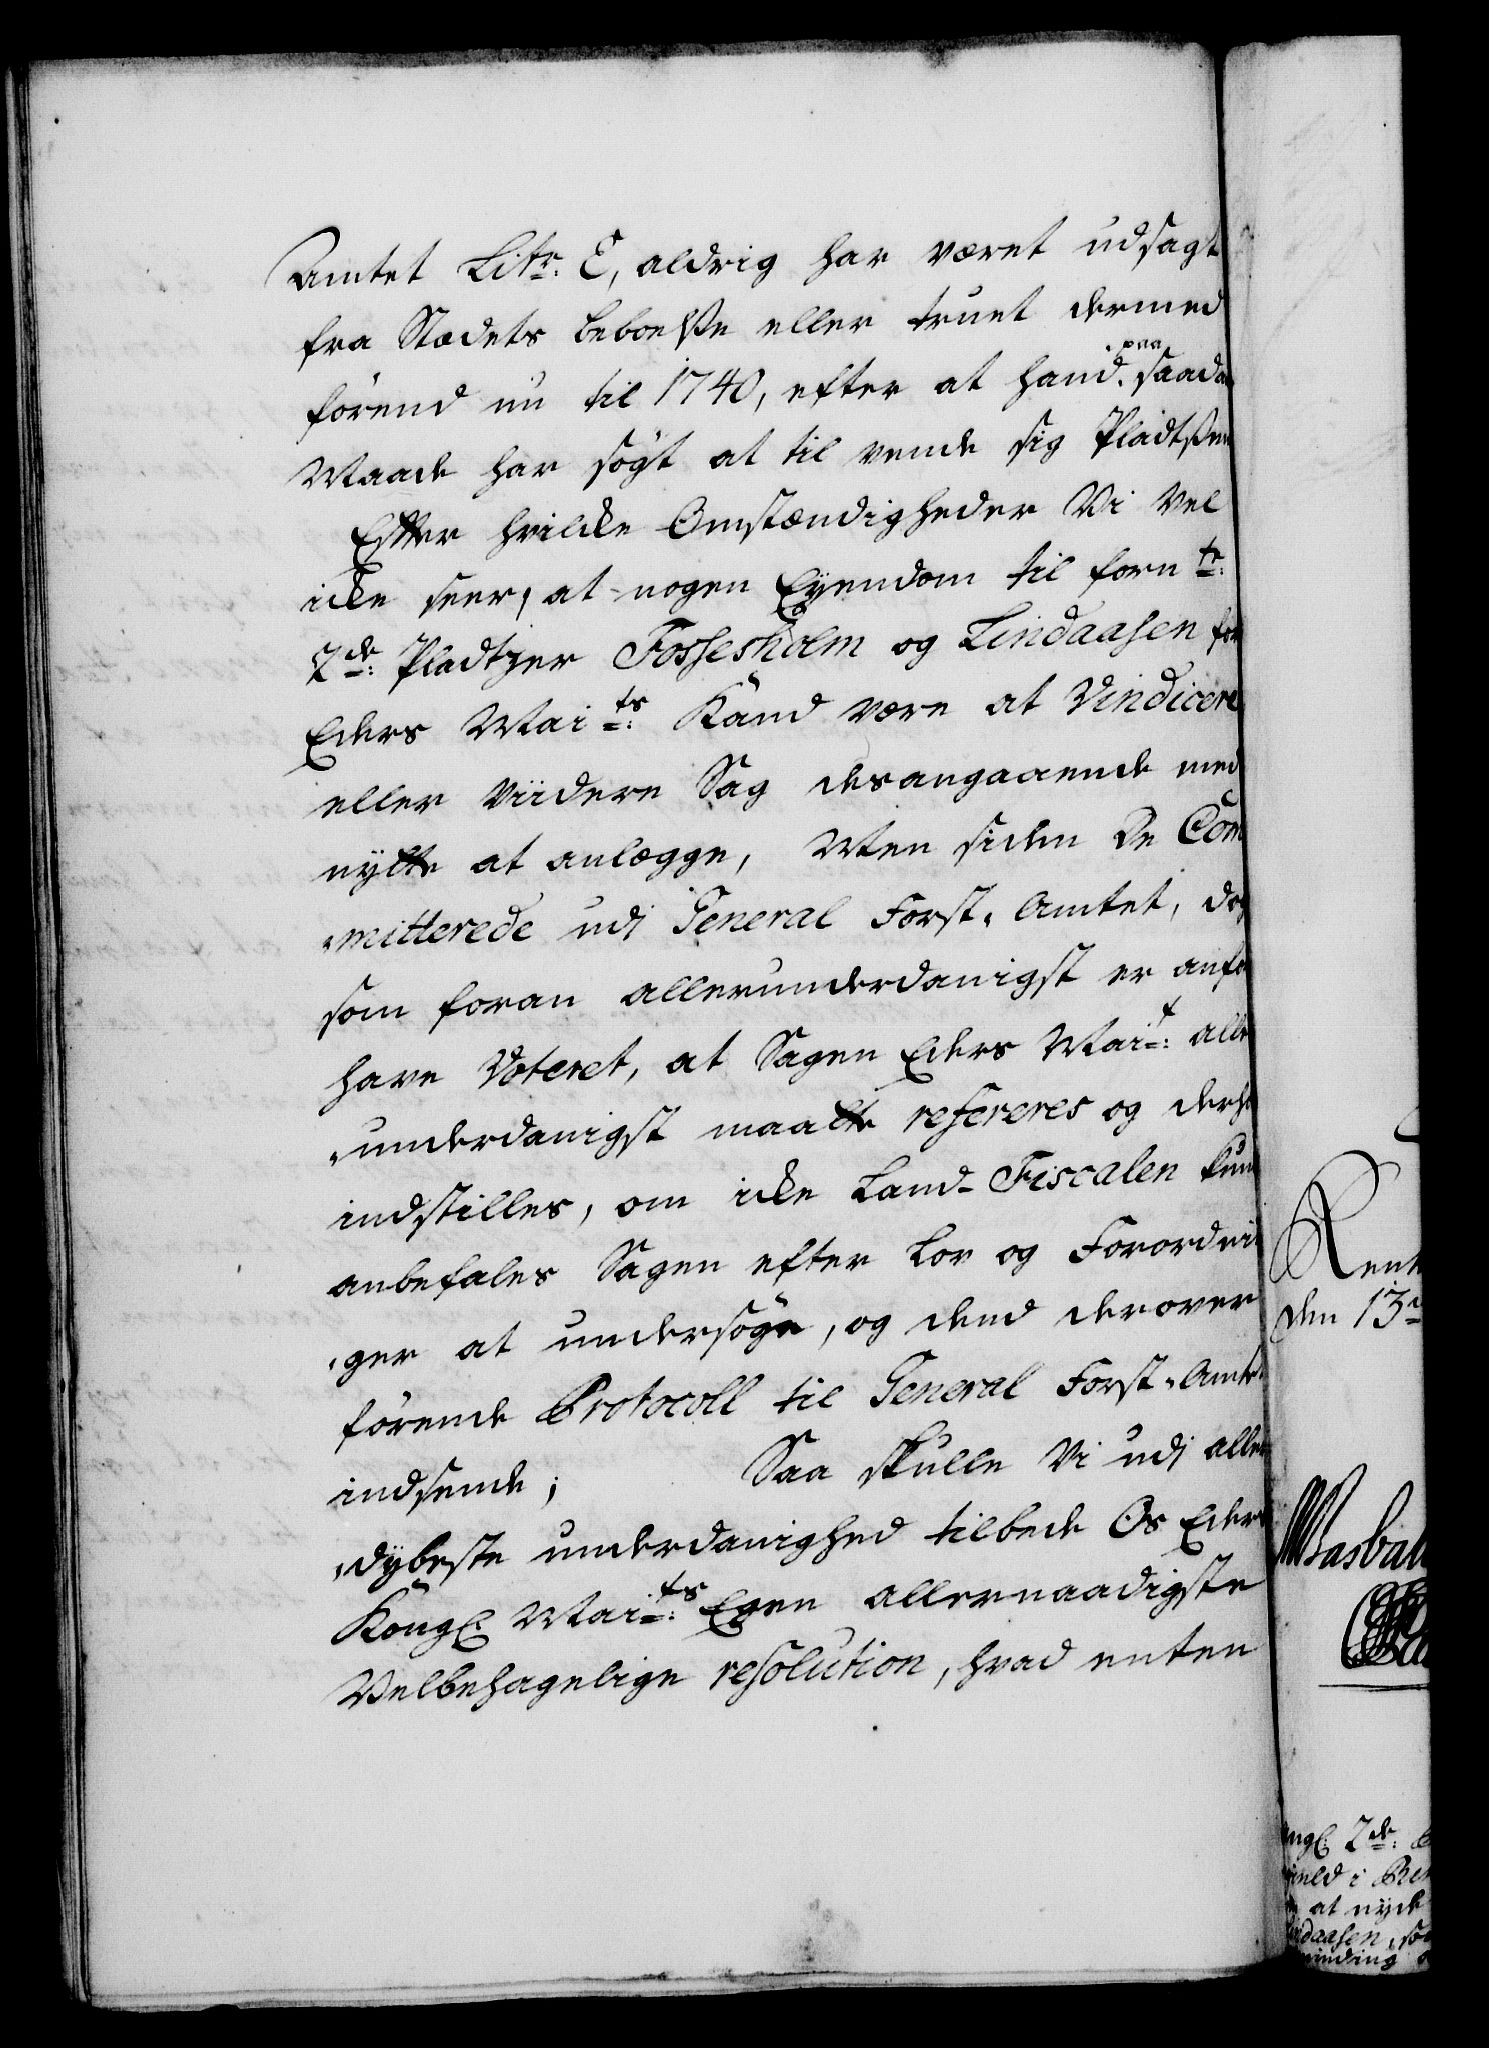 Amtet Litr. E, aldrig har været udsagt
fra Stædets beboelse eller truet dermed
førend nu til 1740, efter at hand paa saadan
Maade har søgt at til vende sig Pladtsen
Efter hvilcke Omstændigheder Vi vel
icke seer, at nogen Eyendom til forn te:
2de: Pladtzer Fossesholm og Lindaasen for
Eders Mai ts: Kand være at Vindicere
eller viidere Sag desangaaende med
nytte at anlægge, Men siden De Com
mitterede udj General Forst-Amtet,
som foran allerunderdanigst er anfø
have Voteret, at Sagen Eders Mai t: aller
underdanigst maatte refereres og derhos
indstilles, om icke Land-Fiscalen kun
anbefales Sagen efter Lov og Forordnin
ger at undersøge, og dend derover
førende Protocoll til General Forst-Amtet
indsende; Saa skulle Vi udj aller
dybeste underdanighed tilbede Os Eders
Kongl: Mai ts: Egen allernaadigste
Velbehagelige resolution, hvad enten
Rent
den 13
2de:
at nyde
daasen